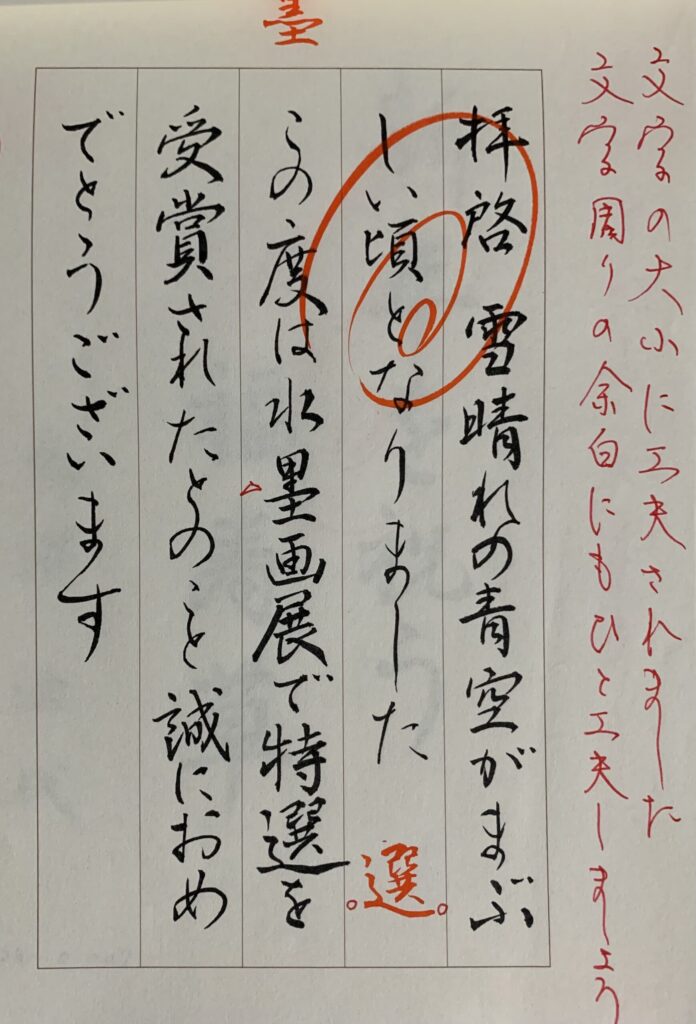 文字の大小に工夫されました
文字周りの余白にもひと工夫しましょう
墨
拝啓 雪晴れの青空がまぶ
しい頃となりました
選
この度は水墨画展で特選を
受賞されたとのこと誠におめ
でとうございます